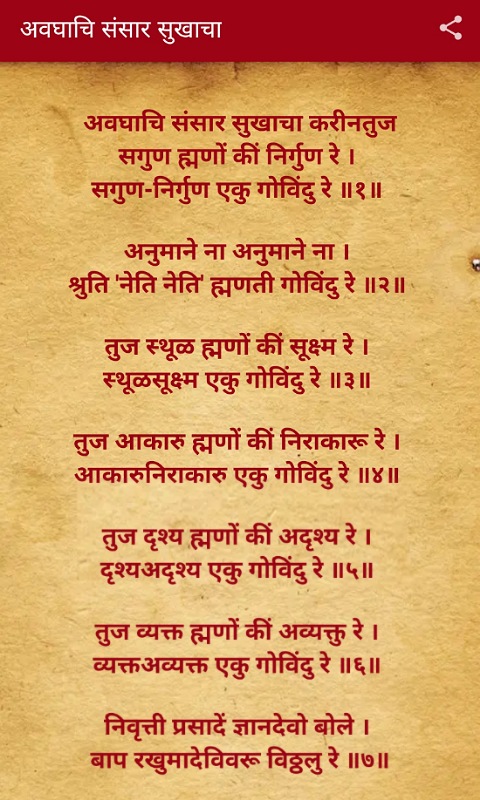 अवघाचि संसार सुखाचा
अवघाचि संसार सुखाचा करीनतुज
सगुण ह्मणों कीं निर्गुण रे ।
सगुण-निर्गुण एकु गोविंदु रे ॥१॥
अनुमाने ना अनुमाने ना ।
श्रुति 'नेति नेति' ह्मणती गोविंदु रे ॥२॥
तुज स्थूळ ह्मणों कीं सूक्ष्म रे ।
स्थूळसूक्ष्म एकु गोविंदु रे ॥३॥
तुज आकारु ह्मणों कीं निराकारू रे ।
आकारुनिराकारु एकु गोविंदु रे ॥४॥
तुज दृश्य ह्मणों कीं अदृश्य रे ।
दृश्यअदृश्य एकु गोविंदु रे ॥५॥
तुज व्यक्त ह्मणों कीं अव्यक्तु रे ।
व्यक्तअव्यक्त एकु गोविंदु रे ॥६॥
निवृत्ती प्रसादें ज्ञानदेवो बोले ।
बाप रखुमादेविवरू विठ्ठलु रे ॥७॥